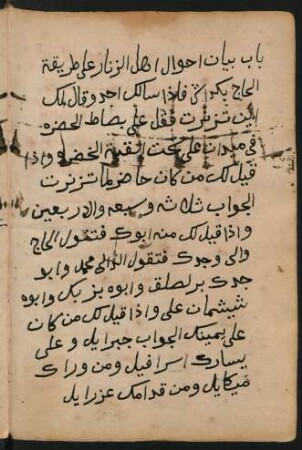 باب بيان احوال اهل الزنار على طريقة
الحاج بكداش فاذا سالك احد وقال لك
اين تزنرت فقل على بصاط الحضره
في ميدان علي تحت القبة الخضره واذا
قيل لك من كان حاضر لما تزنرت
الجواب ثلاثه وسبعه والاربعين
واذا قيل لك منه ابوك فتقول الحاج
والى وجدك فتقول الدالى محمد وابو
جدك وابوه بزبك وابوه
شيشمان على واذا قيل لك من كان
على يمينك الجواب جبرايل وعلى
يسارك اسرافيل ومن وراك
ميكايل ومن قدامك عزرايل